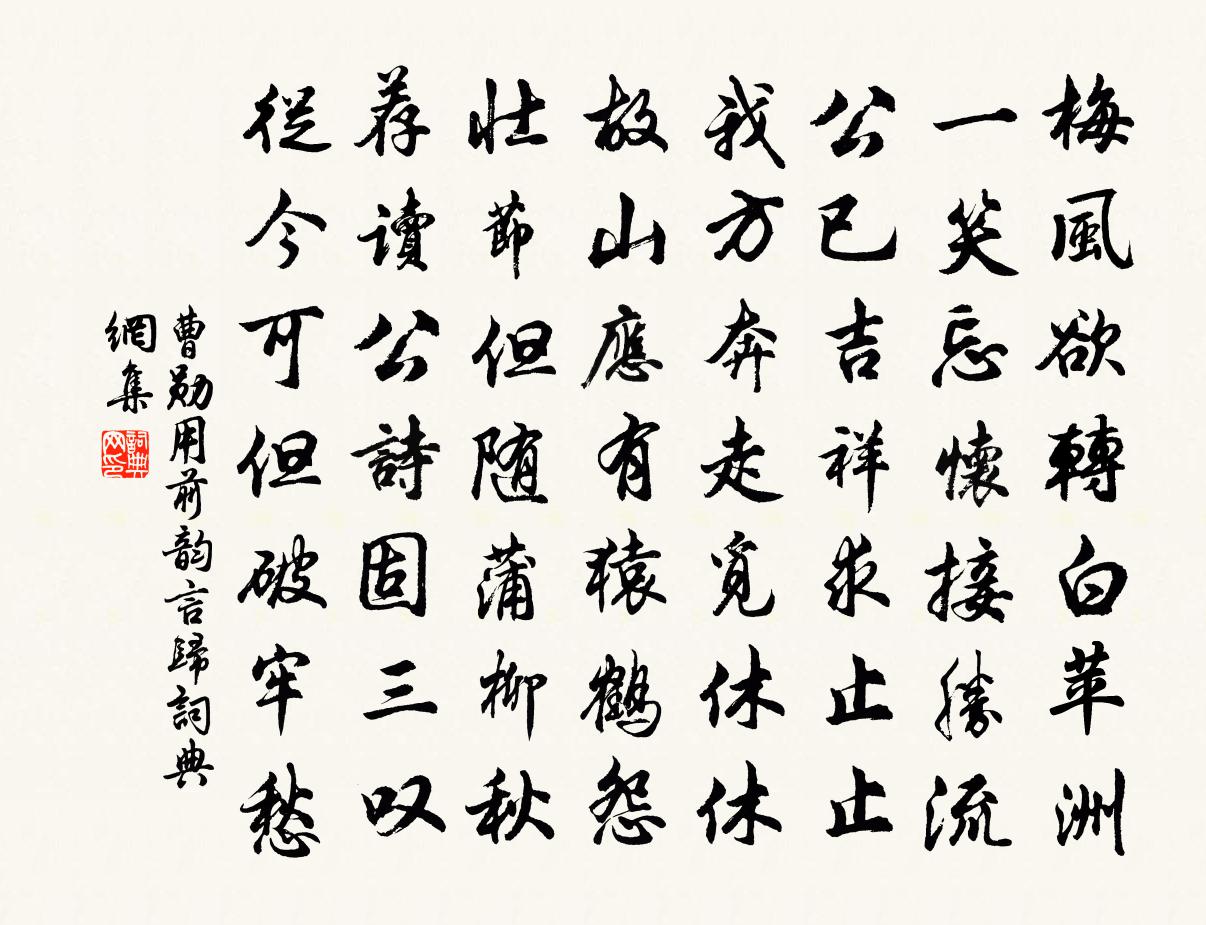 梅風欲轉白苹洲
一笑忘懷接勝流
公已吉祥求止止
我方奔走覓休休
故山應有猿鶴怨
壯節但随蒲柳秋
荐讀公詩固三叹
從今可但破牢愁
曹勛用前韵言歸詞典
網集
詞典网印